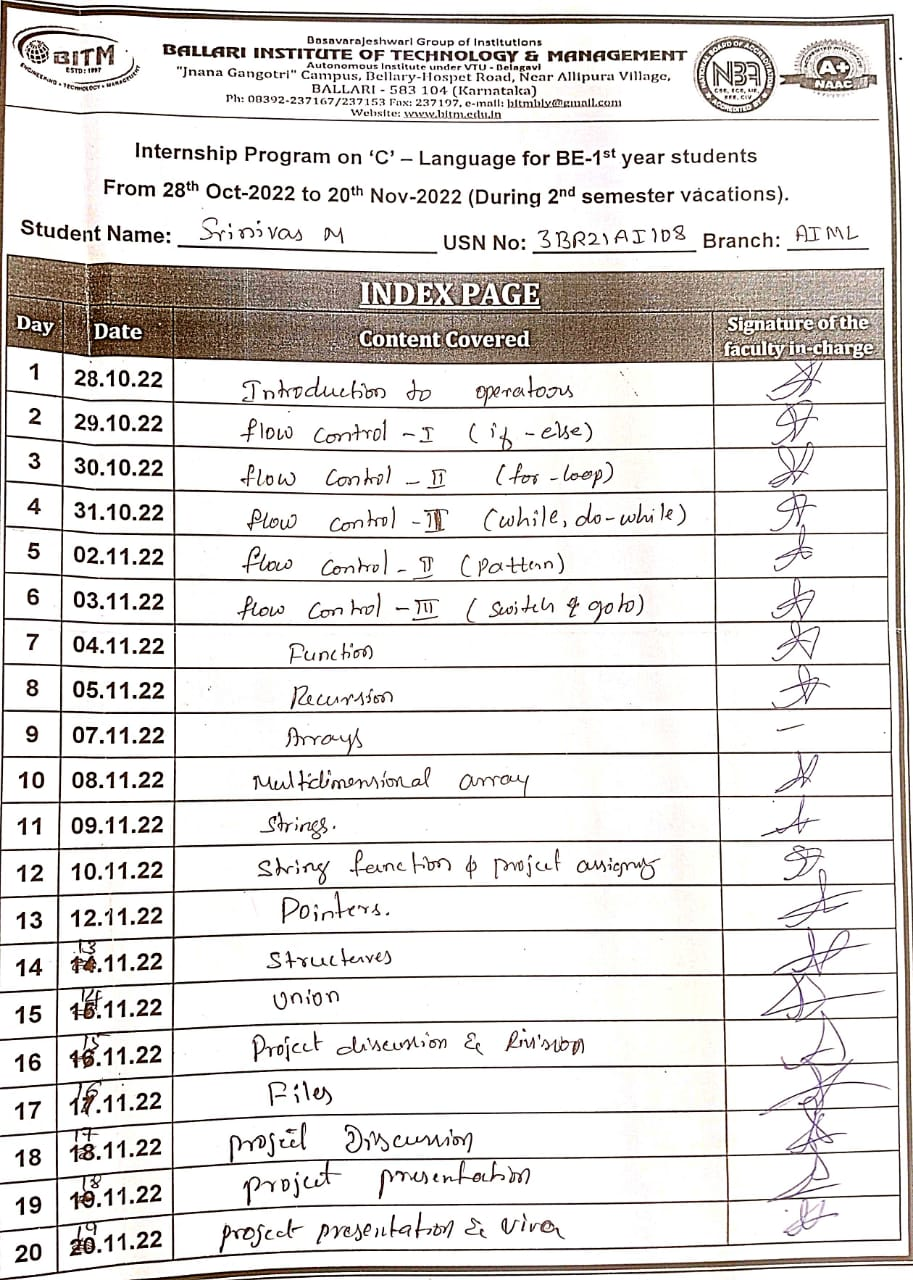 BITM
ESTD: 1997
ENGINEERING • TECHNOLOGY • MANAGEMENT
Basavarajeshwari Group of Institutions
BALLARI INSTITUTE OF TECHNOLOGY & MANAGEMENT
Autonomous Institute under VTU - Belagavi
"Jnana Gangotri" Campus, Bellary-Hospet Road, Near Allipura Village,
BALLARI - 583 104 (Karnataka)
Ph: 08392-237167/237153 Fax: 237197, e-mail: bitmbly@gmail.com
Website: www.bitm.edu.in
NBA
A+
NAAC
Internship Program on ‘C’ – Language for BE-1st year students
From 28th Oct-2022 to 20th Nov-2022 (During 2nd semester vacations).
Student Name: Srinivas M USN No: 3BR21AI108 Branch: AIML
INDEX PAGE
Day Date Content Covered Signature of the faculty in-charge
1 28.10.22 Introduction to operators
2 29.10.22 flow control - I (if - else)
3 30.10.22 flow control - II (for - loop)
4 31.10.22 flow control - II (while, do-while)
5 02.11.22 flow control - II (pattern)
6 03.11.22 flow control - III (switch & goto)
7 04.11.22 Function
8 05.11.22 Recursion
9 07.11.22 Arrays —
10 08.11.22 Multidimensional array
11 09.11.22 Strings.
12 10.11.22 String function & project
13 12.11.22 Pointers.
14 13 14.11.22 Structures
15 14 15.11.22 Union
16 15 16.11.22 Project discussion &
17 16 17.11.22 Files
18 17 18.11.22 project Discussion
19 18 19.11.22 project presentation
20 19 20.11.22 project presentation & viva